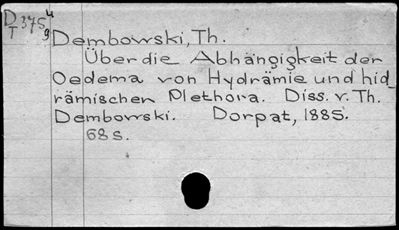 D 375 4
T 9
Dembowski, Th.
Über die Abhängigkeit der
Oedema von Hydrämie und hid_
rämischen Plethora. Diss. v. Th.
Dembowski. Dorpat, 1885.
68 s.